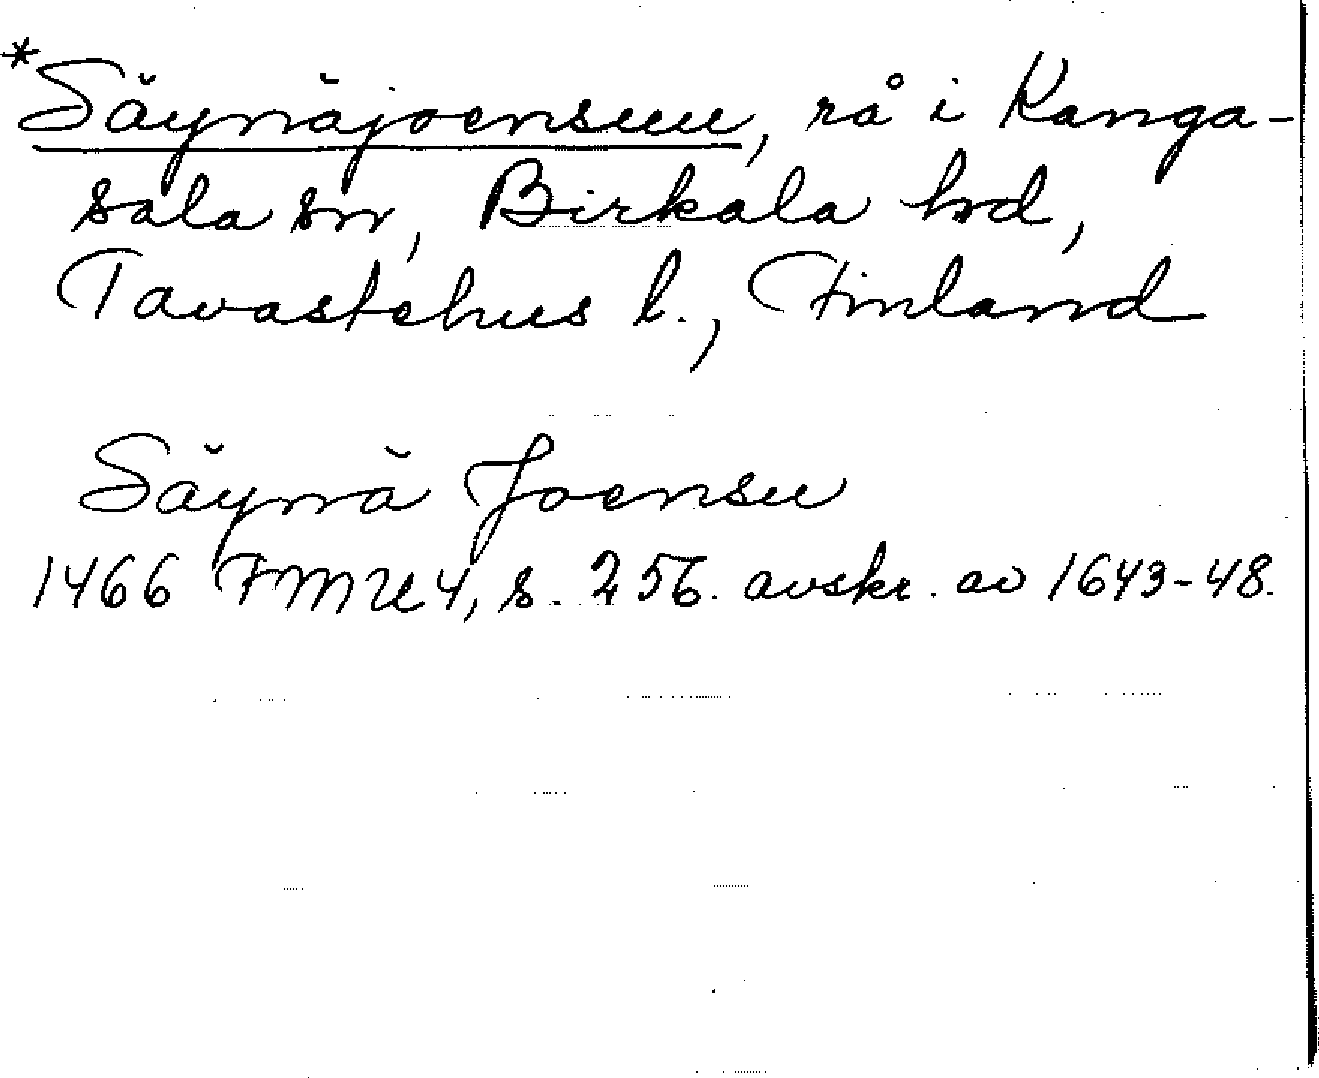 *Säynäjoensuu, rå i Kanga-
sala sn, Birkala hd,
Tavastehus l., Finland
Säynä Joensu
1466 FMU 4, s. 256. avskr. av 1643-48.